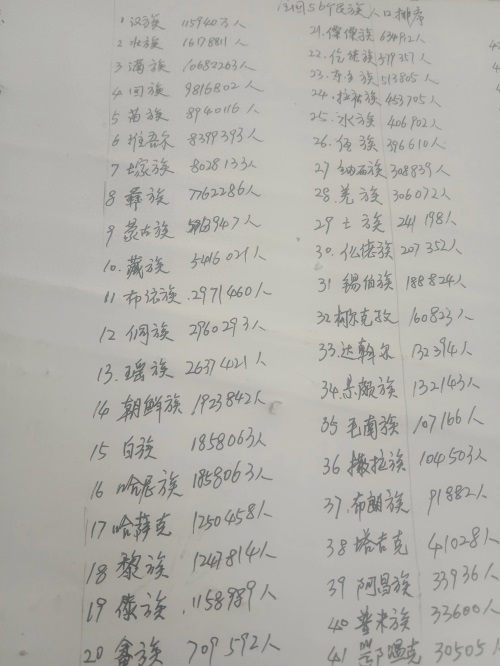 中国56个民族人口排序
1 汉族 11594073人
2 壮族 16178811人
3 满族 10682263人
4 回族 9816802人
5 苗族 8940116人
6 维吾尔 8399393人
7 土家族 8028133人
8 彝族 7762286人
9 蒙古族 5813947人
10. 藏族 5416021人
11 布依族 2971460人
12 侗族 2960293人
13. 瑶族 2637421人
14 朝鲜族 1923842人
15 白族 1858063人
16 哈尼族 1858063人
17 哈萨克 1250458人
18 黎族 1247814人
19 傣族 1158989人
20 畲族 709592人
21. 傈僳族 634912人
22. 仡佬族 579357人
23. 东乡族 513805人
24. 拉祜族 453705人
25. 水族 406902人
26. 佤族 396610人
27 纳西族 308839人
28. 羌族 306072人
29 土族 241198人
30. 仫佬族 207352人
31 锡伯族 188824人
32 柯尔克孜 160823人
33. 达斡尔 132394人
34. 景颇族 132143人
35 毛南族 107166人
36 撒拉族 104503人
37. 布朗族 91882人
38 塔吉克 41028人
39 阿昌族 33936人
40 普米族 33600人
41 鄂温克 30505人